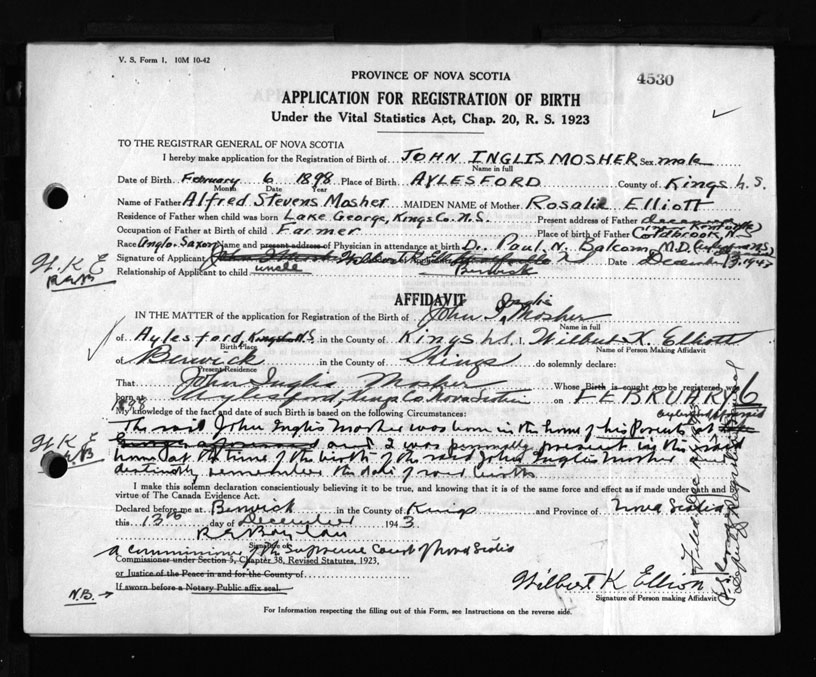 V. S. Form 1. 10M 10-42
PROVINCE OF NOVA SCOTIA
4530
APPLICATION FOR REGISTRATION OF BIRTH
Under the Vital Statistics Act, Chap. 20, R. S. 1923
TO THE REGISTRAR GENERAL OF NOVA SCOTIA
I hereby make application for the Registration of Birth of JOHN INGLIS MOSHER Sex male
Name in full
Date of Birth February 6 1898 Place of Birth AYLESFORD County of Kings N.S.
Month Date Year
Name of Father Alfred Stevens Mosher MAIDEN NAME of Mother Rosalie Elliott
Residence of Father when child was born Lake George, Kings Co. N.S. Present address of Father deceased
Occupation of Father at Birth of child Farmer Place of birth of Father Coldbrook, N.S.
Race Anglo-Saxon Name and present address of Physician in attendance at birth Dr. Paul N. Balcom, M.D.
Signature of Applicant Date December 13, 1943
Relationship of Applicant to child uncle Berwick
W. K. E
AFFIDAVIT
IN THE MATTER of the application for Registration of the Birth of John I. Inglis Mosher
Name in full
of Aylesford Kings Co. N.S. in the County of Kings N.S. I, Wilbert K. Elliott
Birth Place Name of Person Making Affidavit
of Berwick in the County of Kings do solemnly declare:
Present Residence
That John Inglis Mosher Whose Birth is sought to be registered was
born at Aylesford, Kings Co Nova Scotia on FEBRUARY 6
1898
My knowledge of the fact and date of such Birth is based on the following Circumstances:
The said John Inglis Mosher was born in the home of his Parents at
and I was personally present in the said
W. K. E
home at the time of the birth of the said John Inglis Mosher and
distinctly remember the date of said birth
I make this solemn declaration conscientiously believing it to be true, and knowing that it is of the same force and effect as if made under oath and by
virtue of The Canada Evidence Act.
Declared before me at Berwick in the County of Kings and Province of Nova Scotia
this 13th day of December 1943
Signature of
a commissioner of the Supreme Court of Nova Scotia
Commissioner under Section 5, Chapter 38, Revised Statutes, 1923,
or Justice of the Peace in and for the County of
N.B. If sworn before a Notary Public affix seal.
Wilbert K Elliott
Signature of Person making Affidavit
For Information respecting the filling out of this Form, see Instructions on the reverse side.